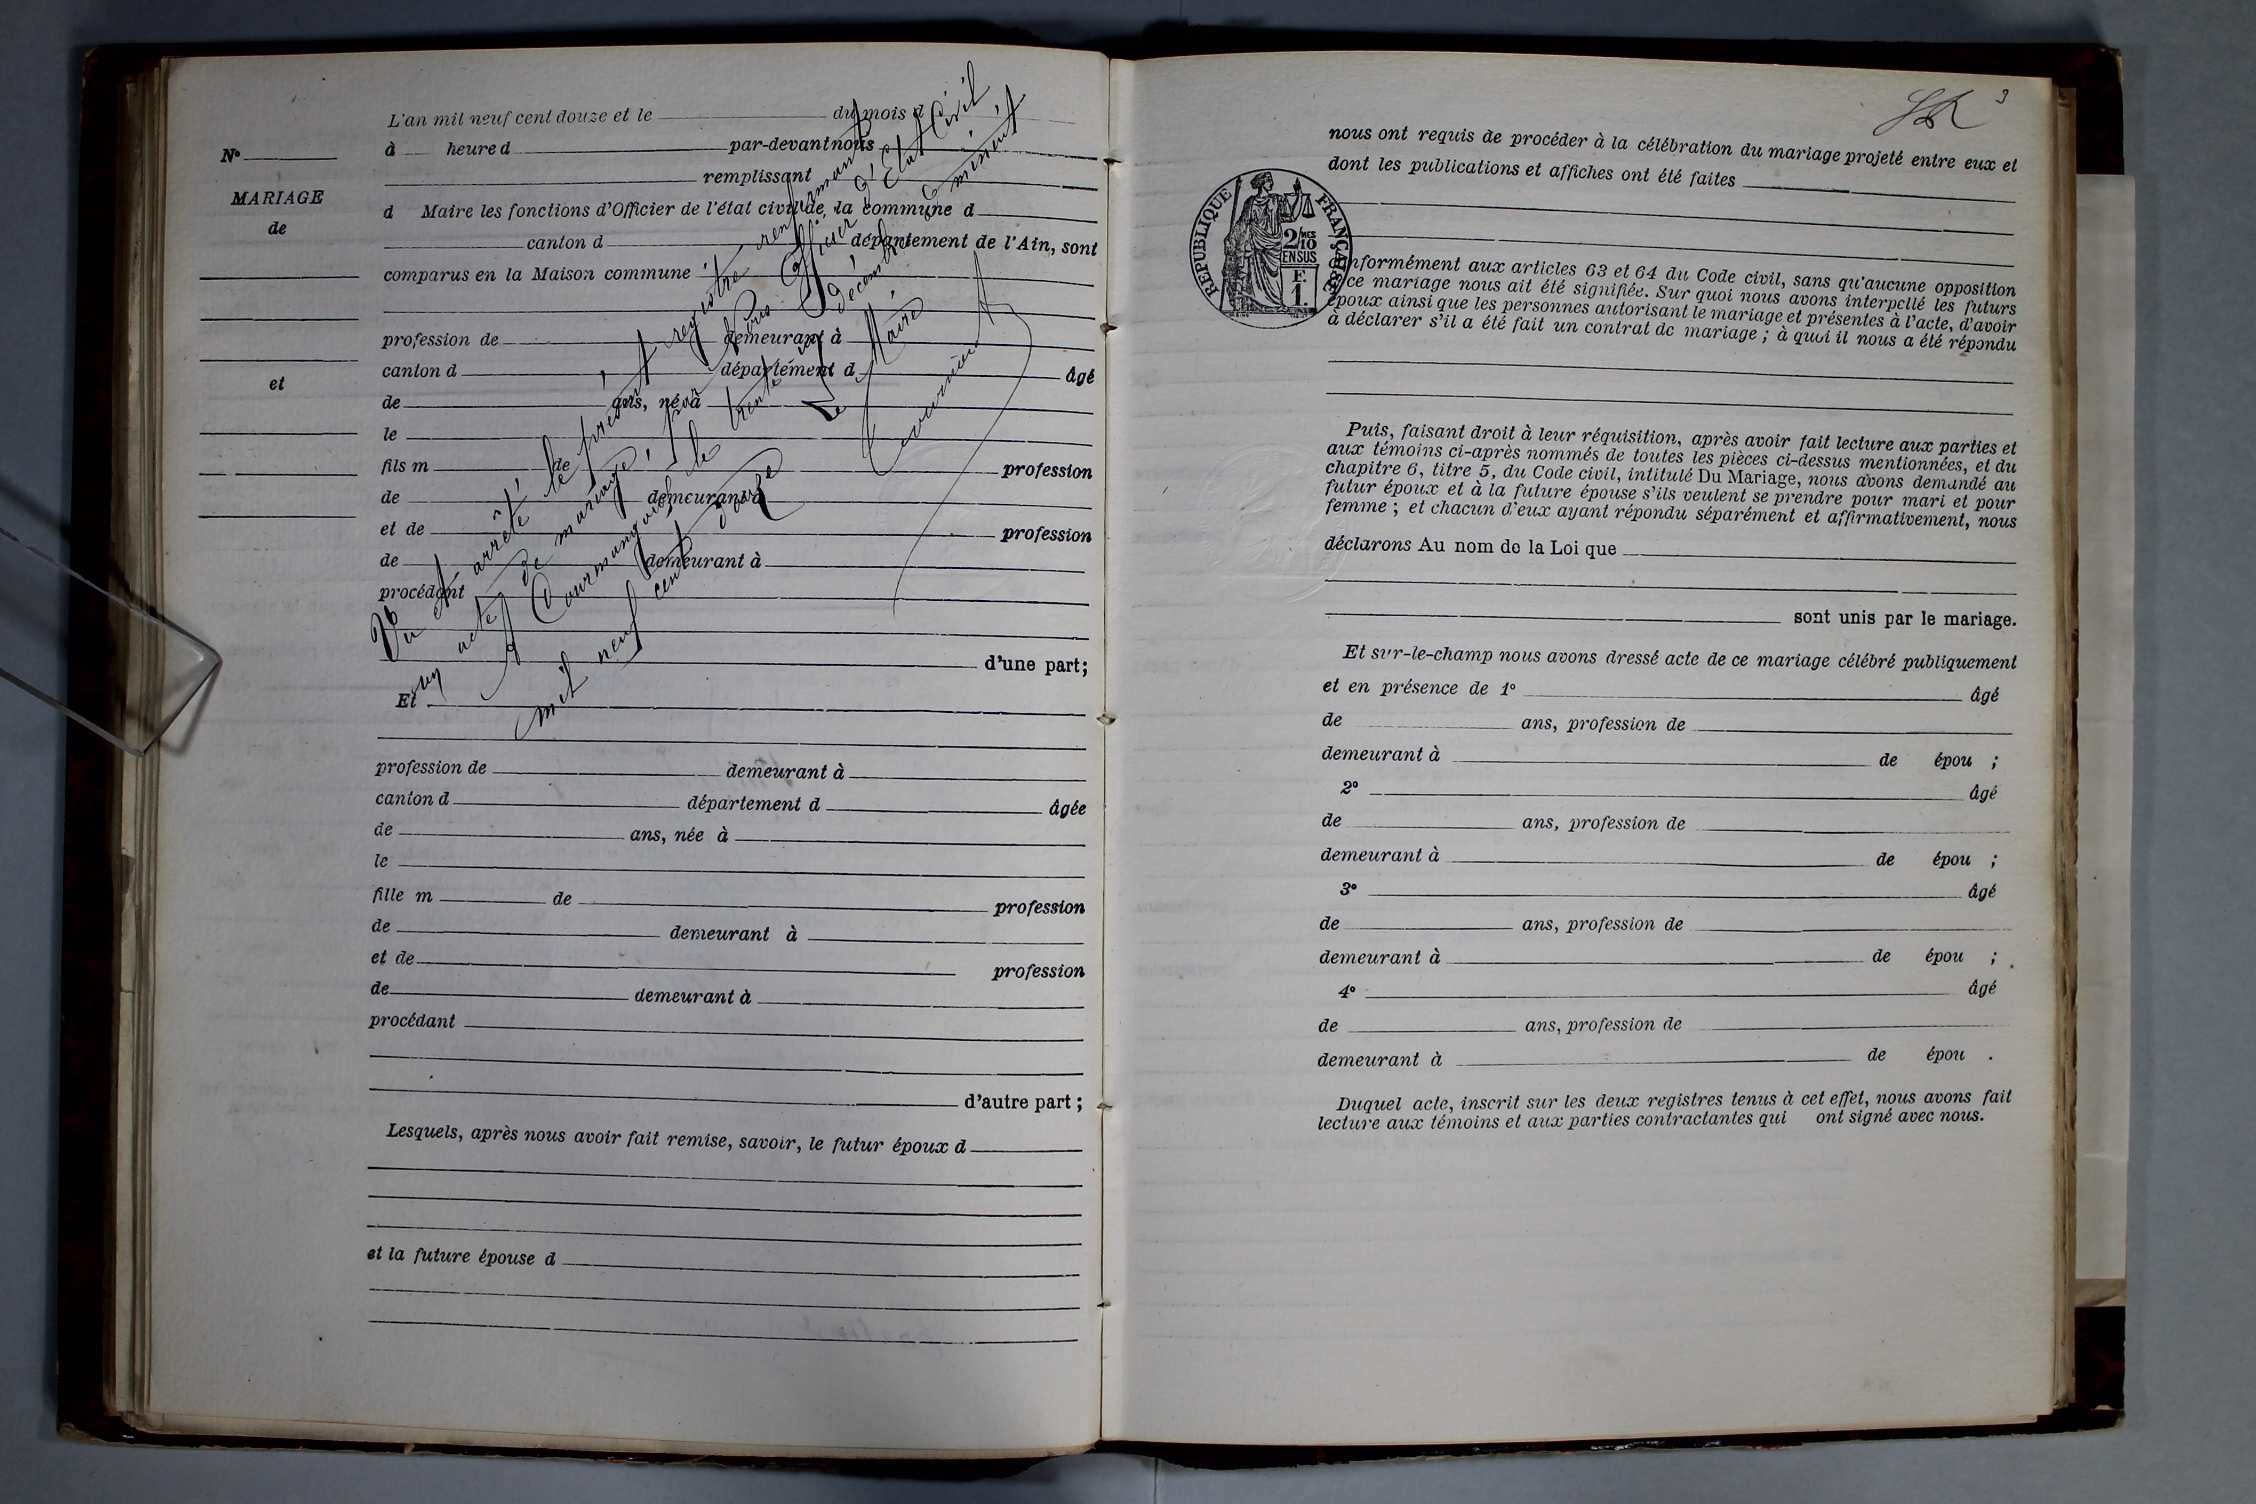 L'an mil neuf cent douze et le du mois d
à heure d par-devant nous
remplissant
d Maire les fonctions d'Officier de l'état civil de la commune d
canton d département de l'Ain, sont
comparus en la Maison commune
profession de demeurant à
canton d département d âgé
de ans, né à
le
fils m de profession
de demeurant à
et de profession
de demeurant à
procédant
d'une part;
Et
profession de demeurant à
canton d département d âgée
de ans, née à
le
fille m de profession
de demeurant à
et de profession
de demeurant à
procédant
d'autre part;
Lesquels, après nous avoir fait remise, savoir, le futur époux d
et la future épouse d
No
MARIAGE
de
et
Vu et arrêté le présent registre renfermant
un acte de mariage, par Nous Officier d'Etat Civil
à Courmangoux le trente un décembre à minuit
mil neuf cent douze
Le Maire
3
nous ont requis de procéder à la célébration du mariage projeté entre eux et
dont les publications et affiches ont été faites
REPUBLIQUE FRANÇAISE
2/10MES
EN SUS
F.
1.
conformément aux articles 63 et 64 du Code civil, sans qu'aucune opposition
à ce mariage nous ait été signifiée. Sur quoi nous avons interpellé les futurs
époux ainsi que les personnes autorisant le mariage et présentes à l'acte, d'avoir
à déclarer s'il a été fait un contrat de mariage; à quoi il nous a été répondu
Puis, faisant droit à leur réquisition, après avoir fait lecture aux parties et
aux témoins ci-après nommés de toutes les pièces ci-dessus mentionnées, et du
chapitre 6, titre 5, du Code civil, intitulé Du Mariage, nous avons demandé au
futur époux et à la future épouse s'ils veulent se prendre pour mari et pour
femme; et chacun d'eux ayant répondu séparément et affirmativement, nous
déclarons Au nom de la Loi que
sont unis par le mariage.
Et sur-le-champ nous avons dressé acte de ce mariage célébré publiquement
et en présence de 1° âgé
de ans, profession de
demeurant à de épou ;
2° âgé
de ans, profession de
demeurant à de épou ;
3° âgé
de ans, profession de
demeurant à de épou ;
4° âgé
de ans, profession de
demeurant à de épou .
Duquel acte, inscrit sur les deux registres tenus à cet effet, nous avons fait
lecture aux témoins et aux parties contractantes qui ont signé avec nous.